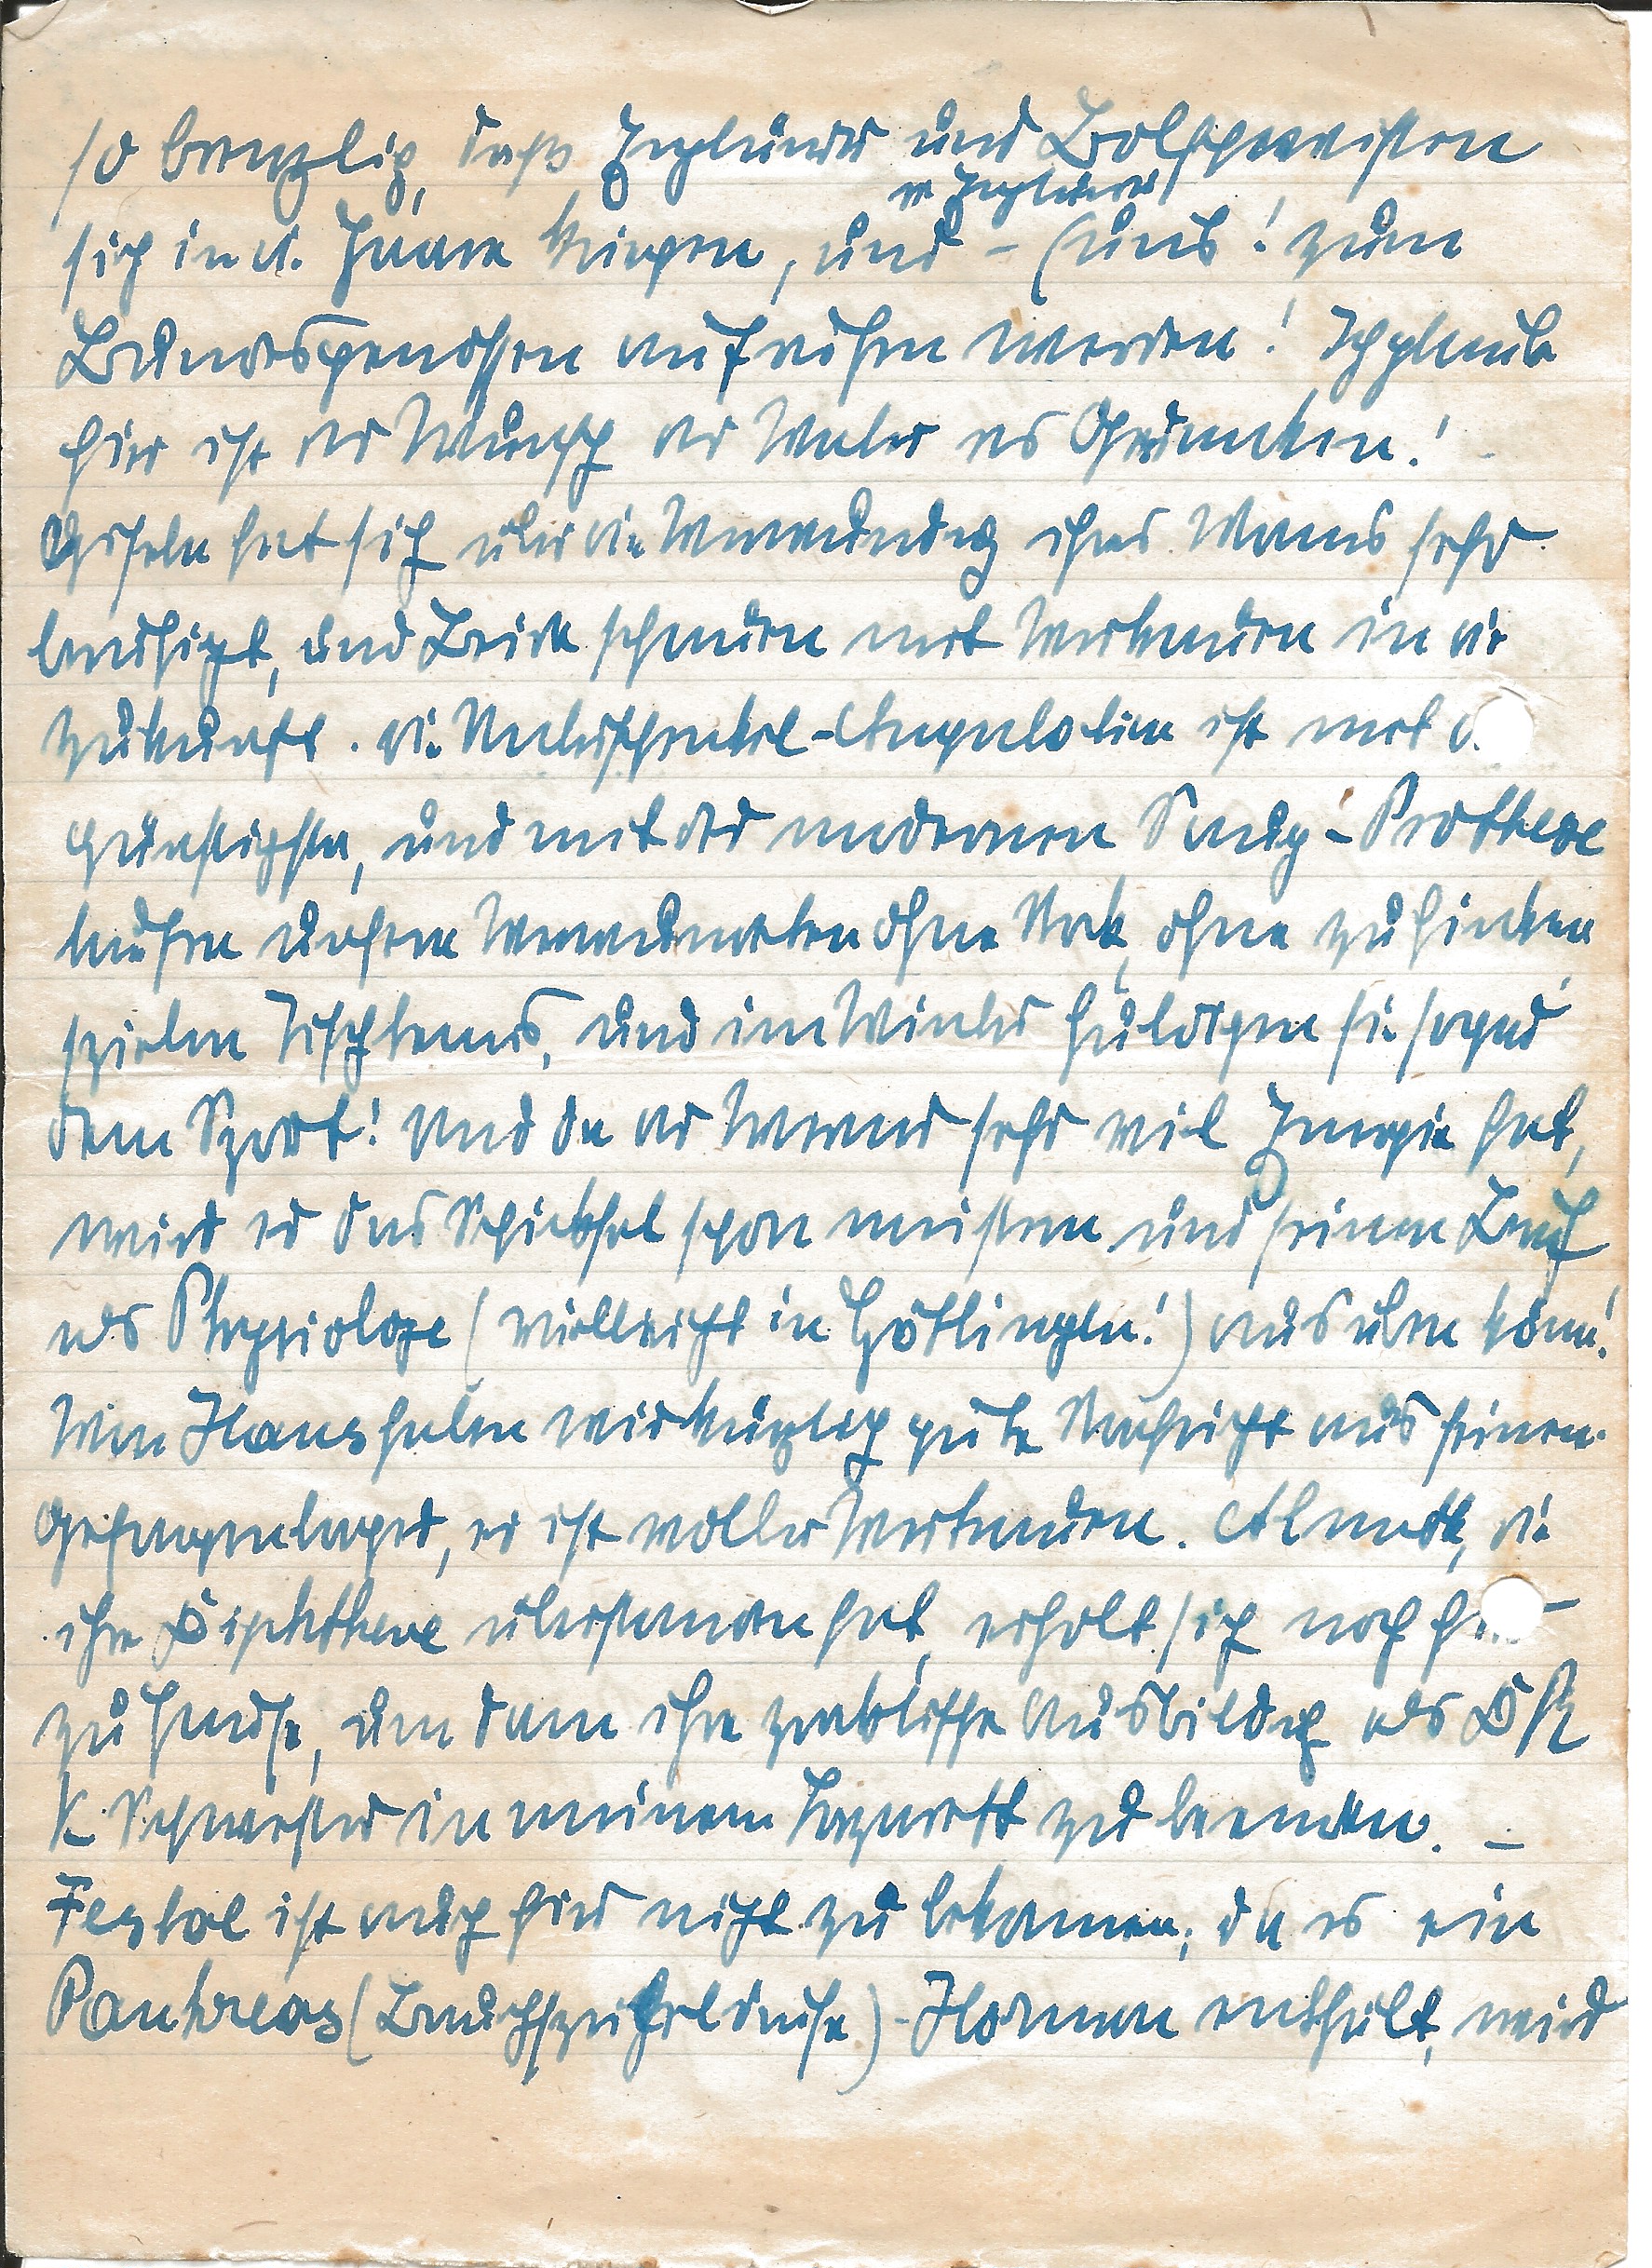 so brenzlig, daß Engländer und Bolschewisten
die Engländer
sich in d. Haare kriegen, und - (uns! zum
Bundesgenossen aufrufen werden! Ich glaube
hier ist der Wunsch der Vater des Gedankens!
Gisela hat sich über die Verwundung ihres Manns sehr
beruhigt, und Beide schauen mit Vertrauen in die
Zukunft. Die Unterschenkel-Amputation ist mit d.
günstigste, und mit der modernen Saug-Prothese
laufen unsere Verwundeten ohne Stock, ohne zu hinken
spielen Tischtennis, und im Winter huldigen sie sogar
dem Sport! Und da der Werner sehr viel Energie hat,
wird er das Schicksal schon meistern und seinen Beruf
als Physiologe (vielleicht in Göttingen!) ausüben könn!
Von Hans haben wir kürzlich gute Nachricht aus seinem
Gefangenlager, er ist voller Vertrauen. Almuth, die
ihre Diphtherie überstanden hat, erholt sich noch hier
zu Hause, um dann ihre praktische Ausbildg als DR
K Schwester in meinem Lazarett zu beenden. –
Festal ist auch hier nicht zu bekommen; da es ein
Pankreas (Bauchspeicheldrüse)-Hormon enthält, wird